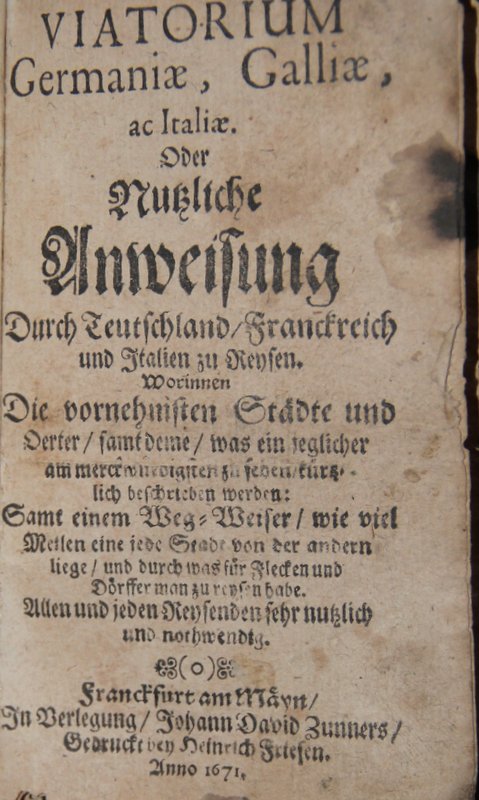 VIATORIUM
Germaniæ, Galliæ,
ac Italiæ.
Oder
Nutzliche
Anweisung
Durch Teutschland/Franckreich
und Italien zu Reysen.
Worinnen
Die vornehmsten Städte und
Oerter / samt deme / was ein jeglicher
am merckwürdigsten zu sehen/kürtz-
lich beschrieben werden:
Samt einem Weg-Weiser / wie viel
Meilen eine jede Stadt von der andern
liege / und durch was für Flecken und
Dörffer man zu reysen habe.
Allen und jeden Reysenden sehr nutzlich
und nothwendig.
(o)
Franckfurt am Mäyn/
In Verlegung / Johann David Zunners /
Gedruckt bey Heinrich Friesen.
Anno 1671.